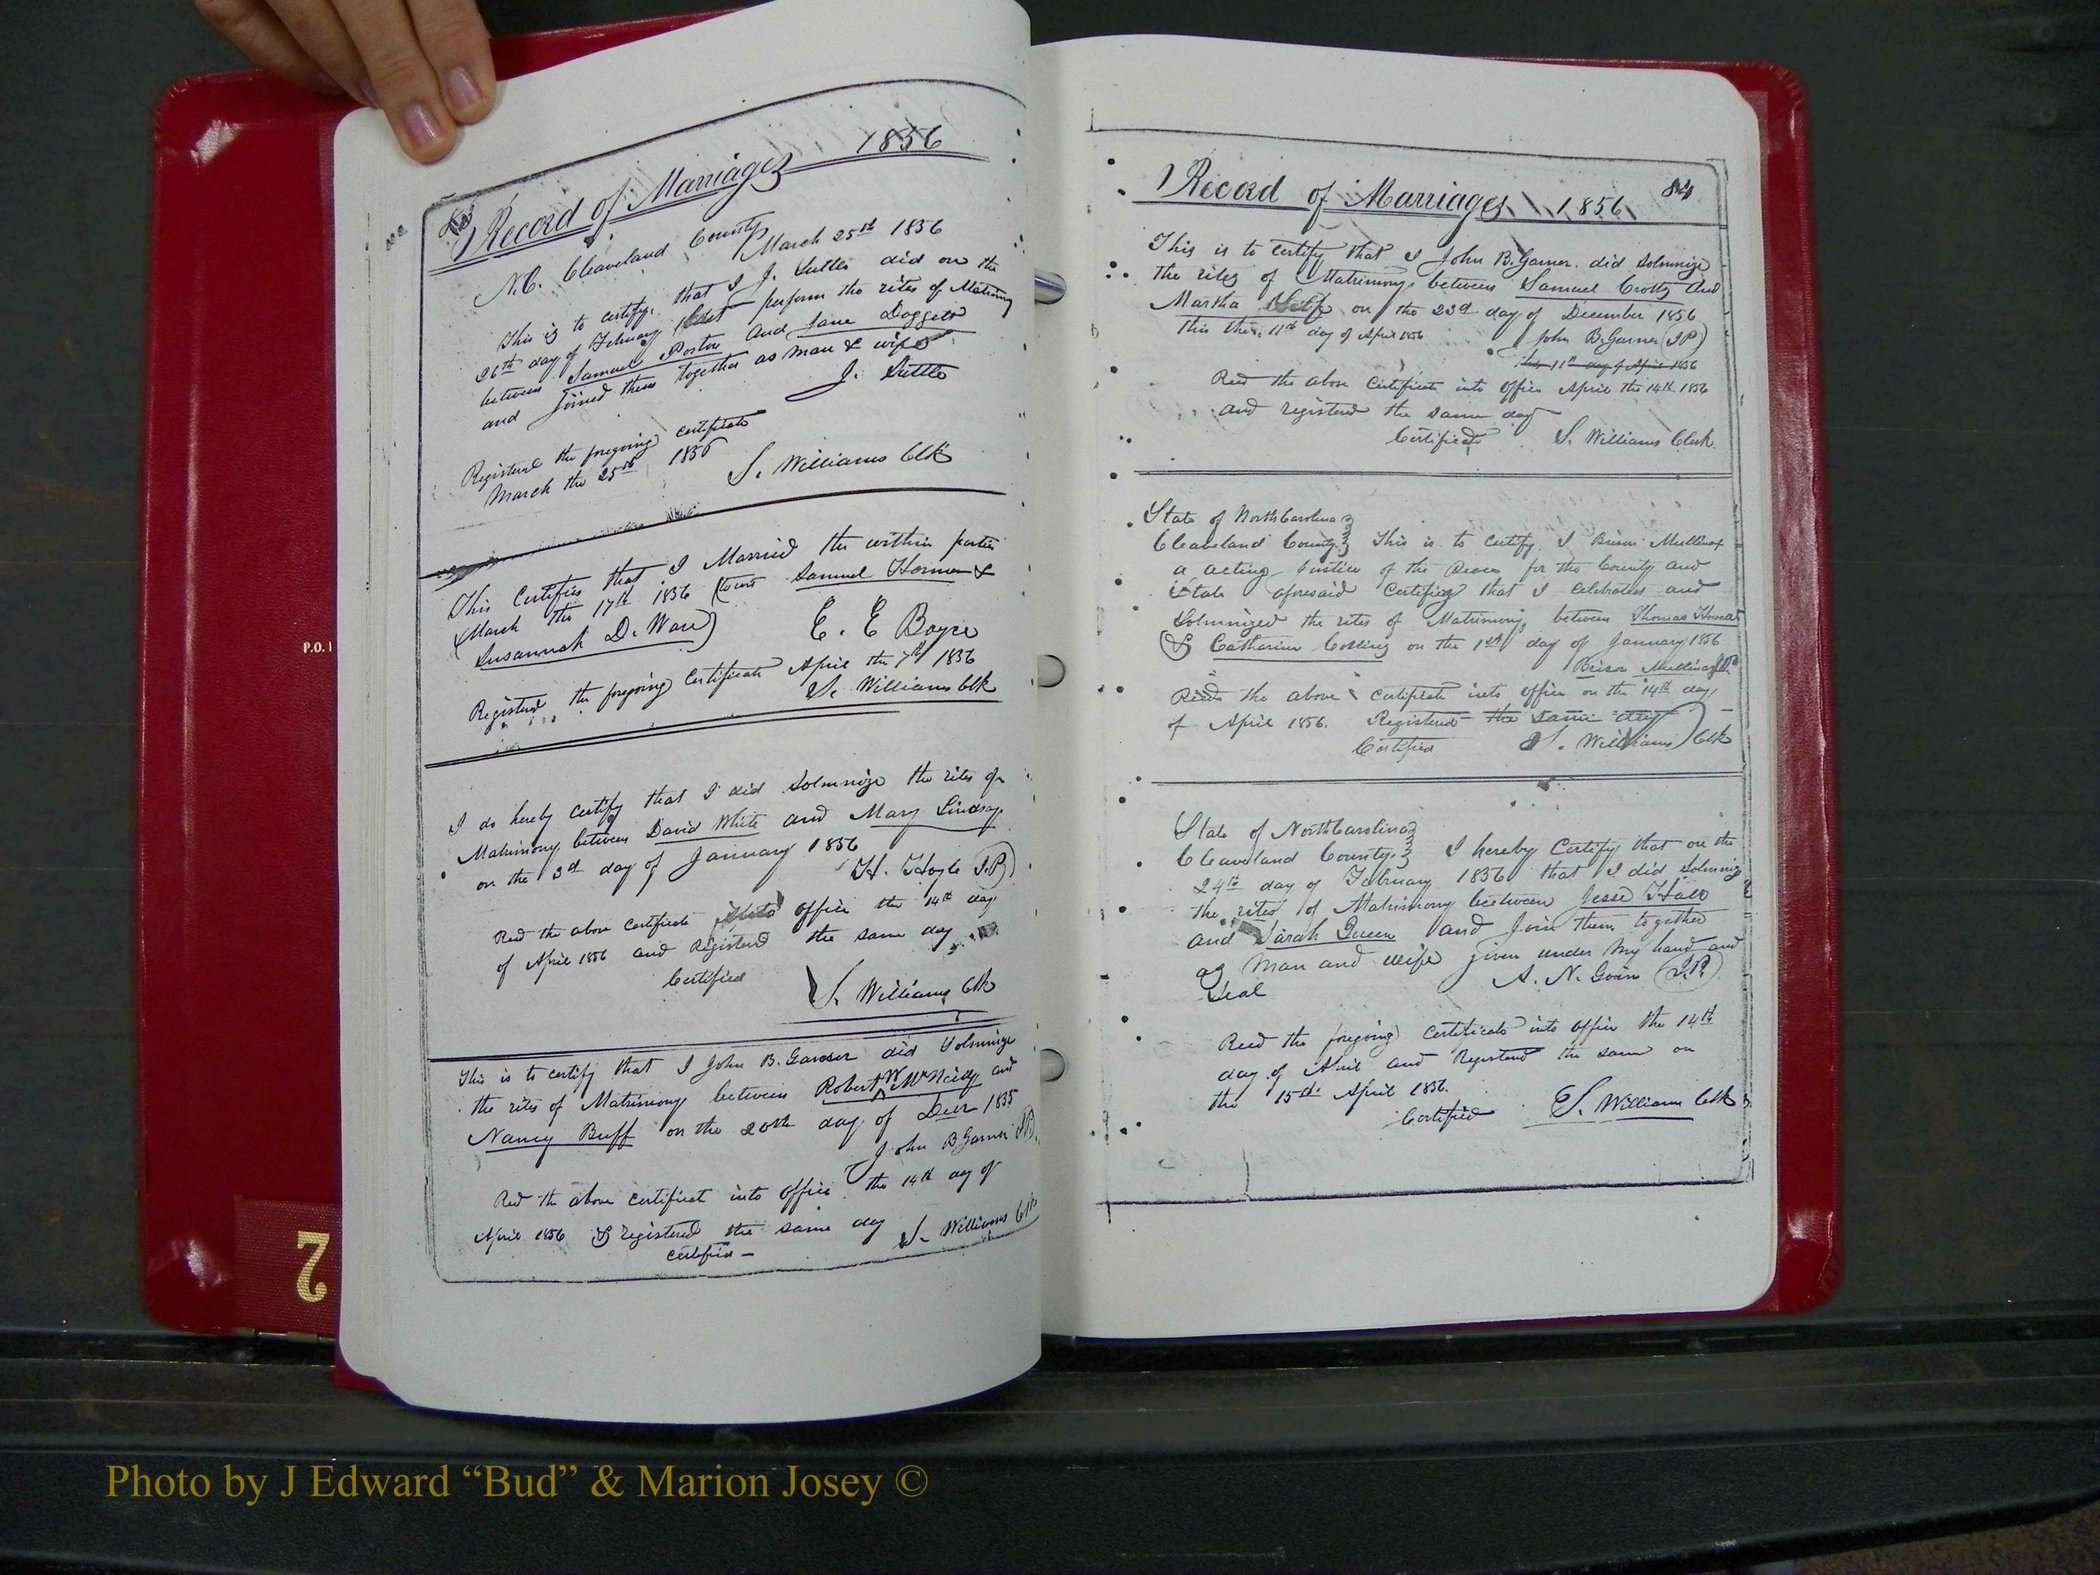 Record of Marriages 1856
N.C. Cleaveland County March 25th 1856
This is to certify, that I J. Suttle did on the
26th day of February perform the rites of Matrimony
between Samuel Poston and Jane Doggett
and Joined them together as man & wife
J. Suttle
Registered the foregoing certificate
March the 25th 1856
S. Williams Clk
This Certifies that I Married the within parties
March the 17th 1856 Samuel Homer &
Susannah D. Ware)
E. E Boyce
Registered the foregoing Certificate April the 7th 1856
S. Williams Clk
I do hereby certify that I did Solmnize the rites of
Matrimony between David White and Mary Lindsay
on the 3d day of January 1856
H. Hoyle J.P)
Recd the above certificate into office the 14th day
of April 1856 and Registered the same day
Certified
S. Williams Clk
This is to certify that I John B. Garner did Solmnize
the rites of Matrimony between Robert W McNeidy and
Nancy Buff on the 20th day of Decr 1855
John B Garner J.P.
Recd the above certificate into office the 14th day of
April 1856 & registered the same day
certified — S. Williams Clk
2
P.O.
Record of Marriages 1856 84
This is to certify that I John B. Garner did Solmnize
the rites of Matrimony between Samuel Crotts and
Martha on the 23d day of December 1856
this the 11th day of April 1856 John B. Garner (J.P)
this 11th day of April 1856
Recd the above Certificate into office April the 14th 1856
and registered the same day
Certificate S. Williams Clerk
State of North Carolina
Cleaveland County This is to certify I Brison Mullinax
a acting Justice of the Peace for the County and
State aforesaid Certifies that I celebrated and
Solmnized the rites of Matrimony between Thomas
& Catharine on the 1st day of January 1856
Brison Mullinax J.P.
Recd the above certificate into office on the 14th day
of April 1856. Registered the same day
Certified S. Williams Clk
State of North Carolina
Cleaveland County I hereby Certify that on the
24th day of February 1856 that I did Solmnize
the rites of Matrimony between Jesse Hall
and Sarah Queen and Join them together
as Man and wife given under my hand and
Seal A. N. Goin (J.P.)
Recd the foregoing certificate into office the 14th
day of April and Registered the same on
the 15th April 1856.
Certified S. Williams Clk
Photo by J Edward “Bud” & Marion Josey ©